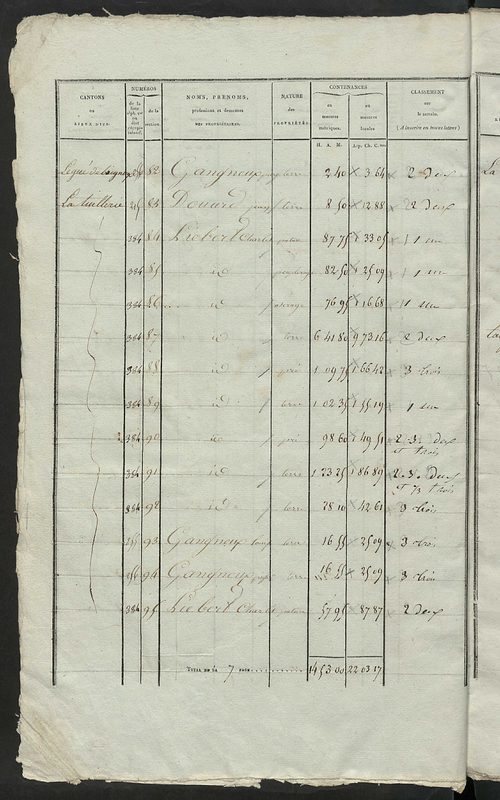 CANTONS
ou
LIEUX-DITS.
NUMÉROS
de la
de la
section.
NOMS, PRÉNOMS,
professions et demeures
DES PROPRIÉTAIRES.
NATURE
des
PROPRIÉTÉS.
CONTENANCES
en
mesures
métriques.
en
mesures
locales
CLASSEMENT
sur
le terrain.
(A inscrire en toutes lettres)
H. A. M. Arp. Ch. C.
82 Gangneux terre 2 40 3 64 2 Deux
La tuillerie 83 Douard terre 8 50 12 88 2 deux
384 84 Liebert Charles 87 75 1 33 05 1 un
384 85 id 82 50 1 25 09 1 un
384 86 id 76 95 1 16 68 1 un
384 87 id terre 6 41 80 9 73 16 2 deux
384 88 id pré 1 09 75 1 66 42 3 trois
384 89 id terre 1 02 35 1 55 19 1 un
384 90 id pré 98 60 1 49 51 2. 3. deux
et trois
384 91 id terre 1 23 25 1 86 89 2. 3. deux
et trois
384 92 id terre 28 10 42 61 3 trois
93 Gangneux terre 16 55 25 09 3 trois
94 Gangneux terre 16 55 25 09 3 trois
384 95 Liebert Charles 57 95 87 87 2 deux
TOTAL DE LA 7 PAGE 14 53 00 22 03 17